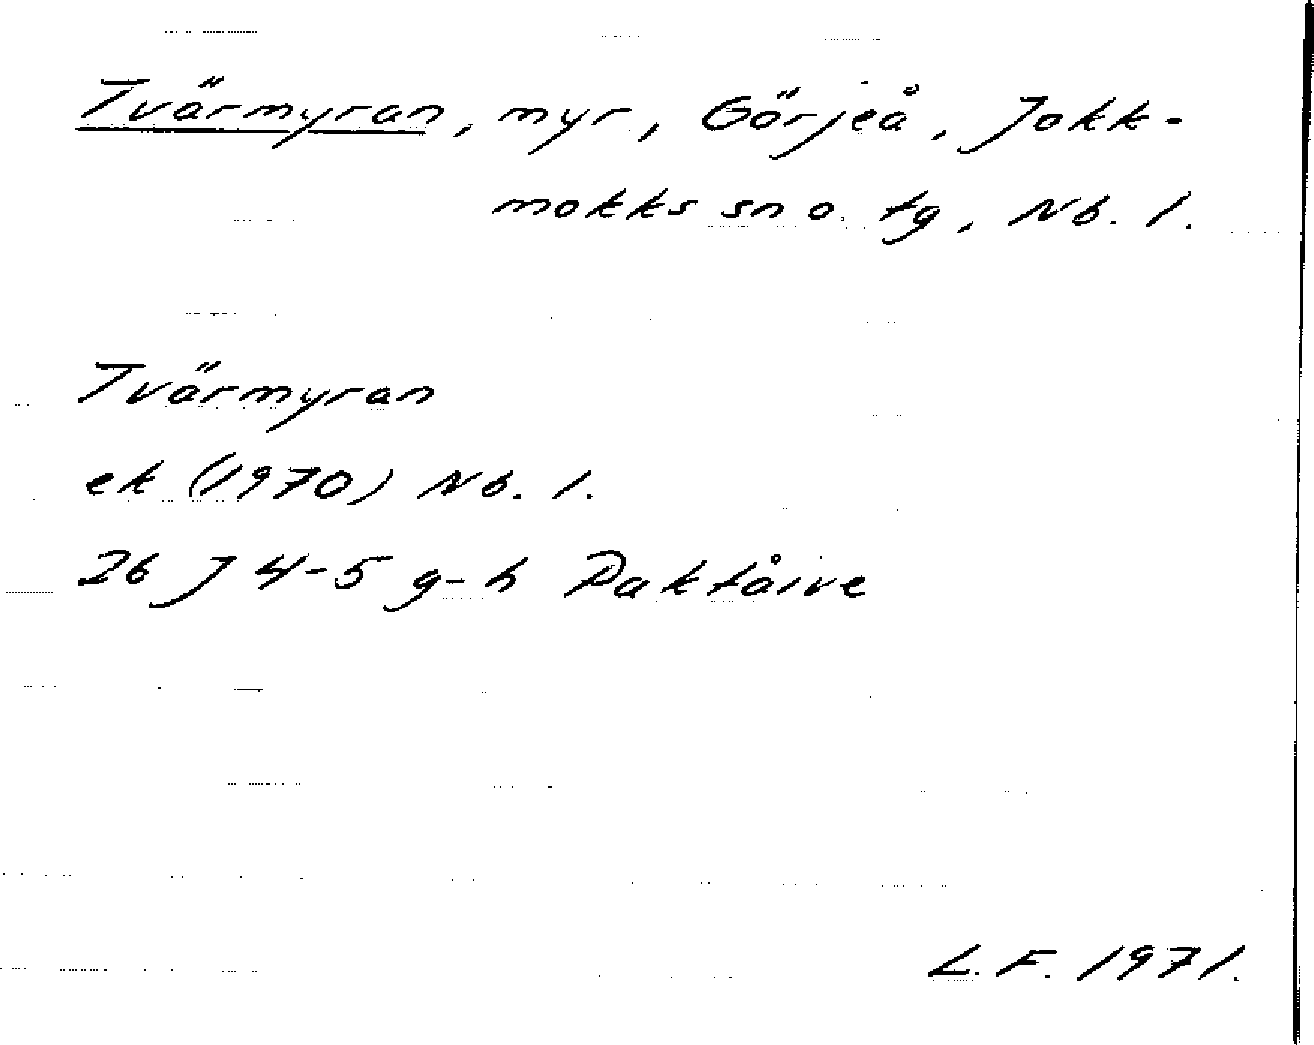 Tvärmyran, myr, Görjeå, Jokk-
mokks sn o. tg, Nb. l.
Tvärmyran
ek (1970) Nb. l.
26 J 4-5 g-h Paktåive
L. F. 1971.